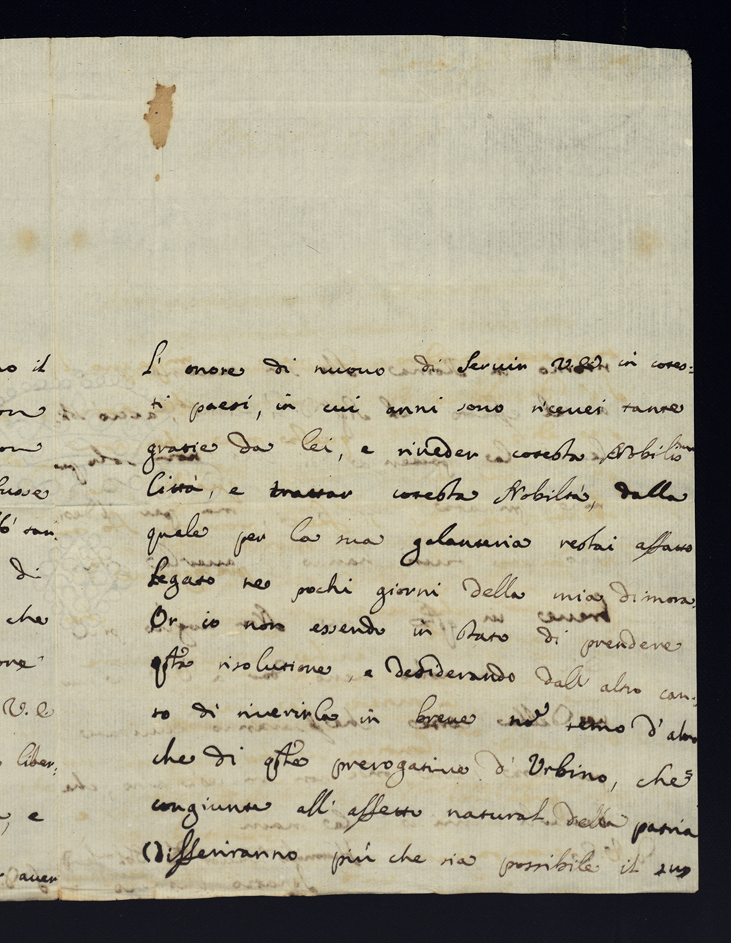 no il
L'onore di nuovo di servir V.E. in cotes=
ti paesi, in cui anni sono ricevei tante
grazie da lei, e riveder cotesta Nobilis.ma
Città, e trattar cotesta Nobiltà, dalla
quale per la sua galanteria restai affatto
legato ne pochi giorni della mia dimora.
di
che
Or io non essendo in stato di prendere
qsta risolutione, e desiderando dall'altro can=
V.E
to di riverirla in breve no' temo d'altro
liber=
che di qste prerogative d'Urbino, che
e
congiunte all'affetto natural della patria
aver
differiranno più che sia possibile il suo